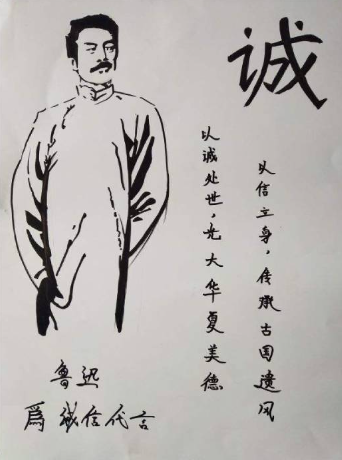 诚
以信立身，传承古国遗风
以诚处世，光大华夏美德
鲁迅
爲诚信代言